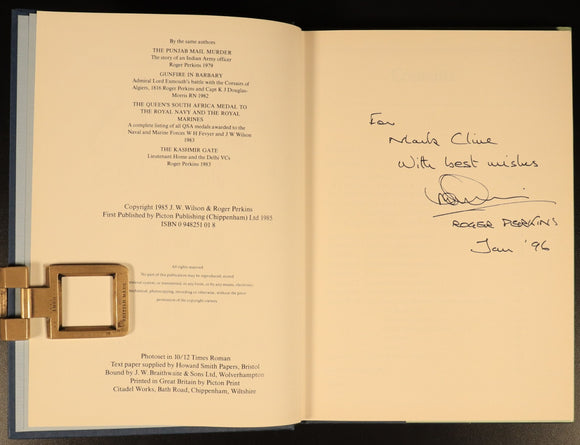 By the same authors
THE PUNJAB MAIL MURDER
The story of an Indian Army officer
Roger Perkins 1979
GUNFIRE IN BARBARY
Admiral Lord Exmouth's battle with the Corsairs of
Algiers, 1816 Roger Perkins and Capt K J Douglas-
Morris RN 1982
THE QUEEN'S SOUTH AFRICA MEDAL TO
THE ROYAL NAVY AND THE ROYAL
MARINES
A complete listing of all QSA medals awarded to the
Naval and Marine Forces W H Fevyer and J W Wilson
1983
THE KASHMIR GATE
Lieutenant Home and the Delhi VCs
Roger Perkins 1983
Copyright 1985 J. W. Wilson & Roger Perkins
First Published by Picton Publishing (Chippenham) Ltd 1985
ISBN 0 948251 01 8
All rights reserved
No part of this publication may be reproduced, stored
retrieval system, or transmitted, in any form, or by any means, electronic,
mechanical, photocopying, recording or otherwise, without the prior
permission of the copyright owners.
Photoset in 10/12 Times Roman
Text paper supplied by Howard Smith Papers, Bristol
Bound by J. W. Braithwaite & Sons Ltd, Wolverhampton
Printed in Great Britain by Picton Print
Citadel Works, Bath Road, Chippenham, Wiltshire
For
Mark Clive
With best wishes
ROGER PERKINS
Jan '96
BRITISH MADE